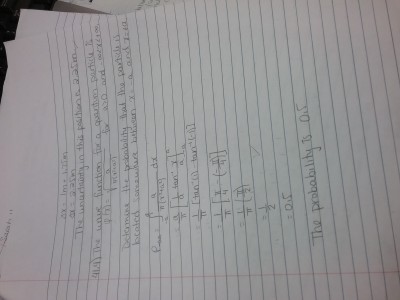 Δx = 1m - 1.25m
Δx = 2.25m
The uncertainty in the position is 2.25m.
The wave function for a quantum particle is
for a>0 and -∞<x<∞
Determine the probability that the particle is
located somewhere between x=-a and x=+a.
P = ∫ a / π(x²+a²) dx
= a/π [1/a tan⁻¹ x/a]
= 1/π [tan⁻¹(1) - tan⁻¹(-1)]
= 1/π [π/4 - (-π/4)]
= 1/π (π/2)
= 1/2
= 0.5
The probability is 0.5